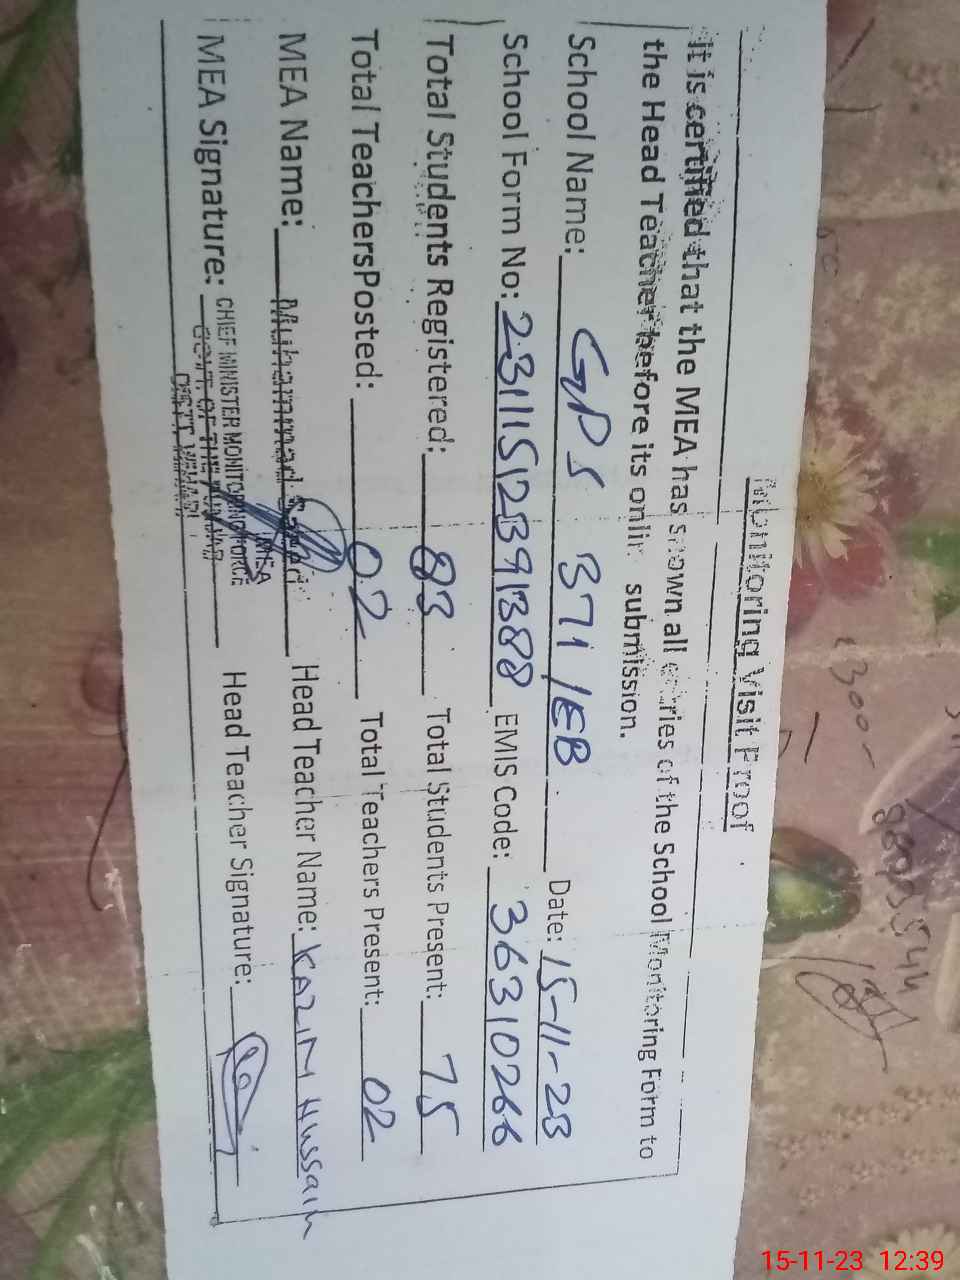 Monitoring Visit Proof
It is certified that the MEA has shown all entries of the School Monitoring Form to
the Head Teacher before its online submission.
School Name: GPS 371/EB Date: 15-11-23
School Form No: 231115123991388 EMIS Code: 36310266
Total Students Registered: 83 Total Students Present: 75
Total TeachersPosted: 02 Total Teachers Present: 02
MEA Name: Muhammad Saeed Head Teacher Name: KAZIM HUSSAIN
MEA
MEA Signature: Head Teacher Signature:
CHIEF MINISTER MONITORING FORCE
GOVT. OF THE PUNJAB
DISTT. VEHARI
1300-
15-11-23 12:39